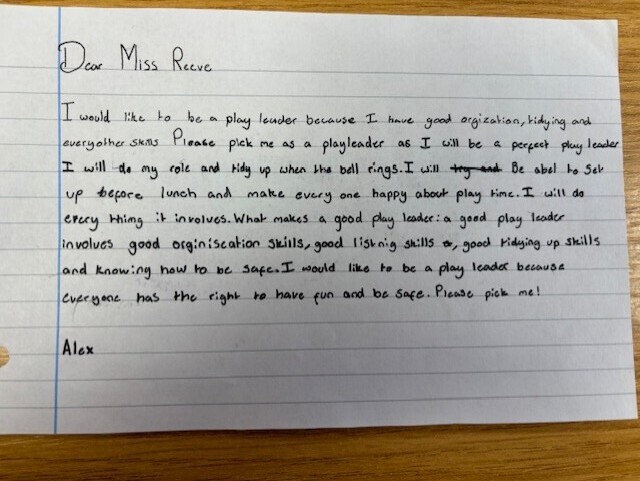 Dear Miss Reeve
I would like to be a play leader because I have good orgization, tidying and
everyother skills Please pick me as a playleader as I will be a perfect play leader
I will do my role and tidy up when the bell rings. I will try and Be abel to Set
up before lunch and make every one happy about play time. I will do
every thing it involves. What makes a good play leader: a good play leader
involves good orginiscation skills, good listnig skills, good tidying up skills
and knowing how to be safe. I would like to be a play leader because
everyone has the right to have fun and be safe. Please pick me!
Alex